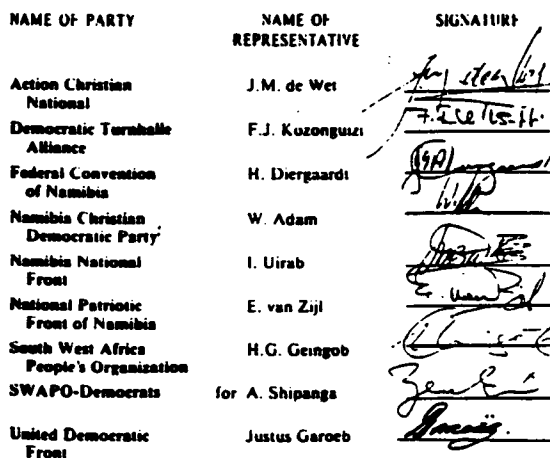 NAME OF PARTY NAME OF REPRESENTATIVE SIGNATURE
Action Christian National J.M. de Wet
Democratic Turnhalle Alliance F.J. Kozonguizi
Federal Convention of Namibia H. Diergaardt
Namibia Christian Democratic Party W. Adam
Namibia National Front I. Uirab
National Patriotic Front of Namibia E. van Zijl
South West Africa People's Organization H.G. Geingob
SWAPO-Democrats for A. Shipanga
United Democratic Front Justus Garoeb